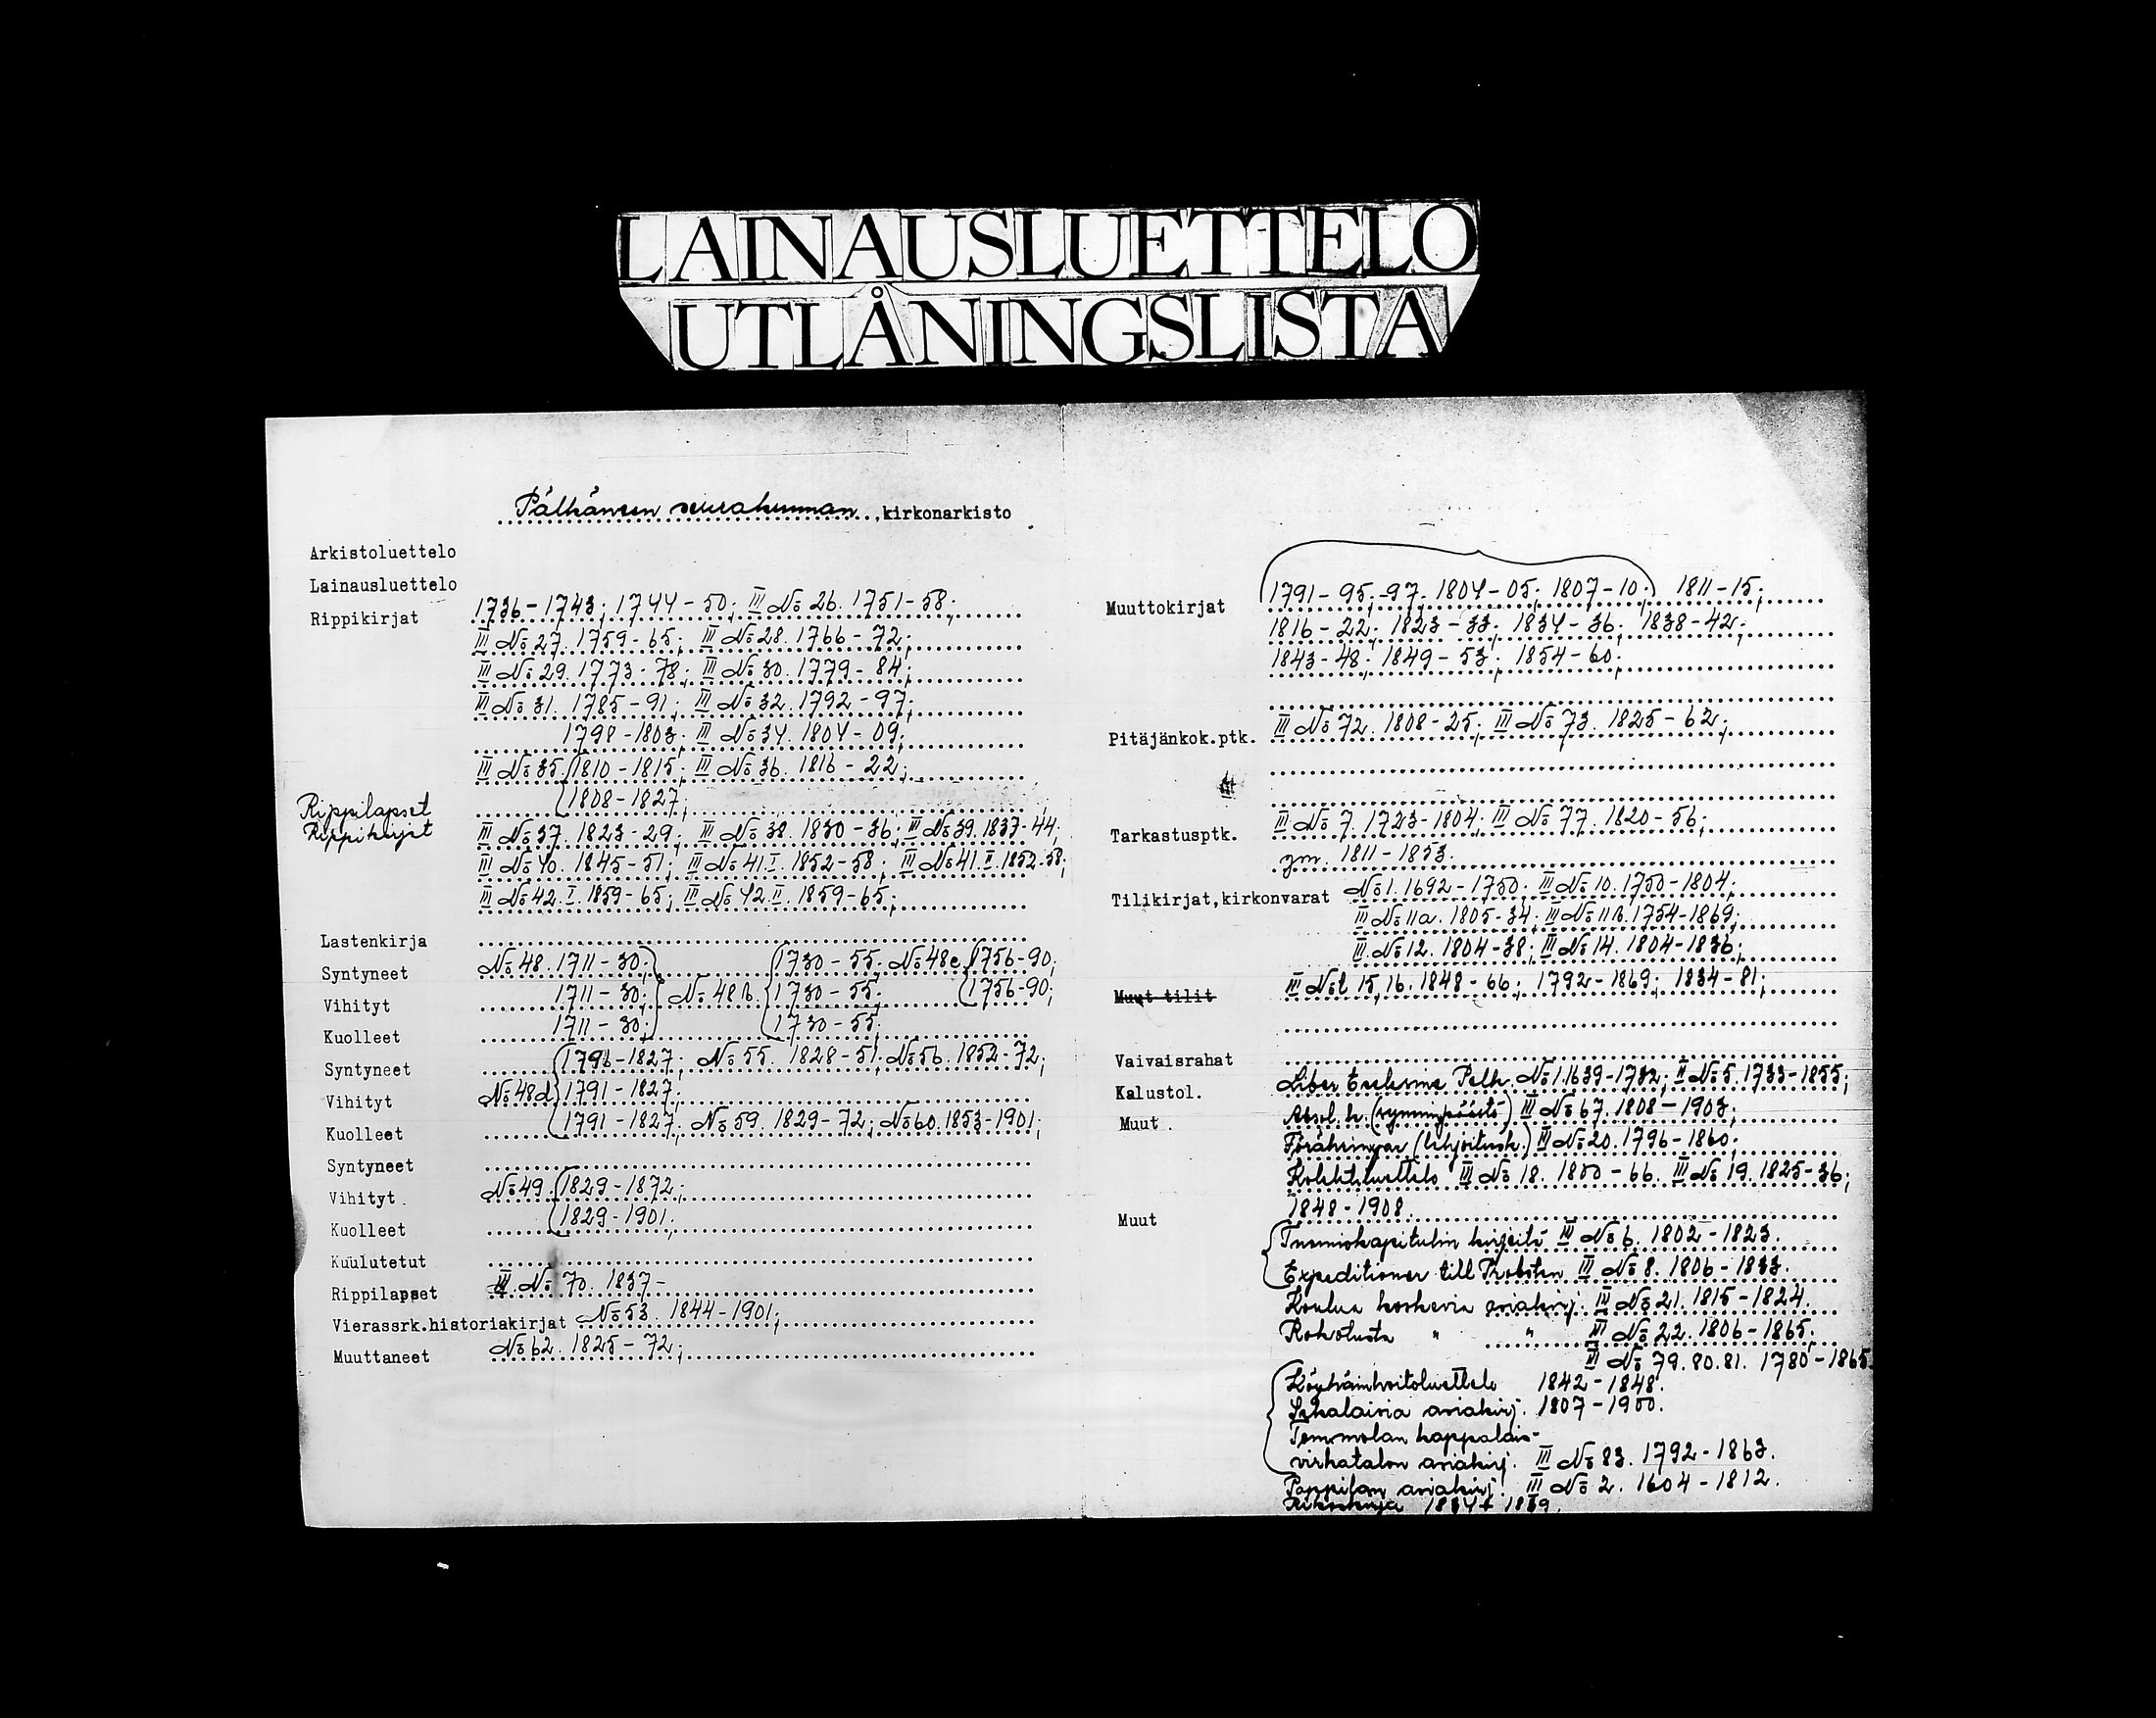 LAINAUSLUETTELO
UTLÅNINGSLISTA
Pälkäneen seurakunnan, kirkonarkisto
Arkistoluettelo
Lainausluettelo
Rippikirjat 1736-1743; 1744-50; III No 26. 1751-58;
III No 27. 1759-65; III No 28. 1766-72;
III No 29. 1773-78; III No 30. 1779-84;
III No 31. 1785-91; III No 32. 1792-97;
1798-1803; III No 34. 1804-09;
III No 35. 1810-1815; III No 36. 1816-22;
Rippilapset 1808-1827;
Rippikirjat III No 37. 1823-29; III No 38. 1830-36; III No 39. 1837-44;
III No 40. 1845-51; III No 41.I. 1852-58; III No 41.II. 1852-58;
III No 42.I. 1859-65; III No 42.II. 1859-65;
Lastenkirja
Syntyneet No 48. 1711-30; 1730-55; No 48c 1756-90;
Vihityt 1711-30; No 48b. 1730-55; 1756-90;
Kuolleet 1711-30; 1730-55;
Syntyneet 1796-1827; No 55. 1828-51; No 56. 1852-72;
Vihityt No 48d 1791-1827;
Kuolleet 1791-1827; No 59. 1829-72; No 60. 1853-1901;
Syntyneet
Vihityt No 49. 1829-1872;
Kuolleet 1829-1901;
Kuulutetut
Rippilapset III No 70. 1837-
Vierassrk.historiakirjat No 53. 1844-1901;
Muuttaneet No 62. 1825-72;
Muuttokirjat 1791-95; -97; 1804-05; 1807-10; 1811-15;
1816-22; 1823-33; 1834-36; 1838-42;
1843-48; 1849-53; 1854-60;
Pitäjänkok.ptk. III No 72. 1808-25; III No 73. 1825-62;
Tarkastusptk. III No 7. 1723-1804; III No 77. 1820-56;
ym. 1811-1853.
Tilikirjat,kirkonvarat No 1. 1692-1750; III No 10. 1750-1804;
III No 11a. 1805-34; III No 11b. 1754-1869;
III No 12. 1804-38; III No 14. 1804-1836;
Muut tilit III No 15, 16. 1848-66; 1792-1869; 1834-81;
Vaivaisrahat
Kalustol. Liber Ecclesiae Pelk. No 1. 1639-1732; II No 5. 1733-1855;
Muut Absol.k. (synninpäästö) III No 67. 1808-1903;
Föräringar (lahjoitusk.) III No 20. 1796-1860;
Kolehtiluettelo III No 18. 1800-66. III No 19. 1825-36;
Muut 1848-1908.
Tuomiokapitulin kirjeitä III No 6. 1802-1823.
Expeditioner till Probsten III No 8. 1806-1833.
Koulua koskevia asiakirj. III No 21. 1815-1824.
Rokotusta " " III No 22. 1806-1865.
III No 79. 80. 81. 1780-1865.
Köyhäinhoitoluettelo 1842-1848.
Sekalaisia asiakirj. 1807-1900.
Tommolan kappalais-
virkatalon asiakirj. III No 83. 1792-1863.
Pappilan asiakirj. III No 2. 1604-1812.
Rikoskirja